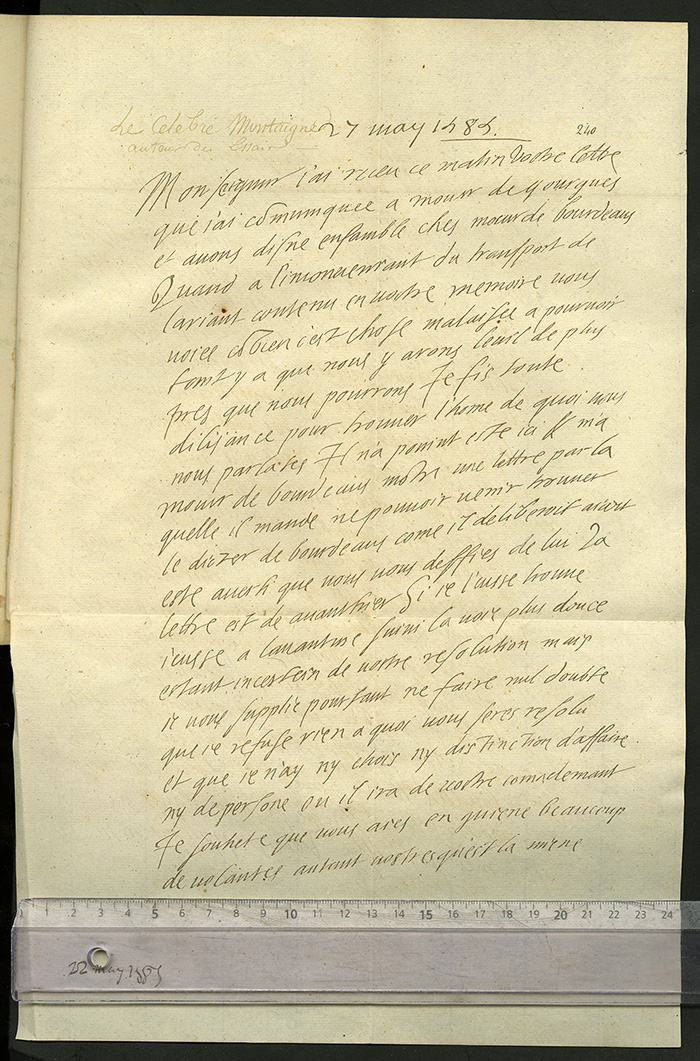 Le Celebre Montaigne
autour des Essais
27 may 1585.
240
Monseigneur j'ai receu ce matin vostre lettre
que j'ai comuniquee a monsr de gourgues
et avons disné ensamble ches monsr de bourdeaus
Quand a l'inconveniant du transport de
l'arjant contenu en vostre memoire vous
voiés combien c'est chose malaisee a pourvoir
tant y a que nous y arons l'euil de plus
pres que nous pourrons Je fis toute
dilijance pour trouver l'home de quoi vous
nous parlates Il n'a pouint esté ici Et m'a
monsr de bourdeaus montré une lettre par la
quelle il mande ne pouvoir venir trouver
le dict sr de bourdeaus come il deliberoit aiant
esté averti que vous vous deffies de lui La
lettre est de avanthier Si je l'eusse trouvé
j'eusse a l'avanture suivi la voie plus douce
estant incertein de vostre resolution mais
je vous supplie pourtant ne faire nul doubte
que je refuse rien a quoi vous seres resolu
et que je n'ay ny chois ny distinction d'affaire
ny de persone ou il ira de vostre comademant
Je souhete que vous aies en guiene beaucoup
de volantes autant vostres qu'est la miene
0 1 2 3 4 5 6 7 8 9 10 11 12 13 14 15 16 17 18 19 20 21 22 23 24
22 may 1585